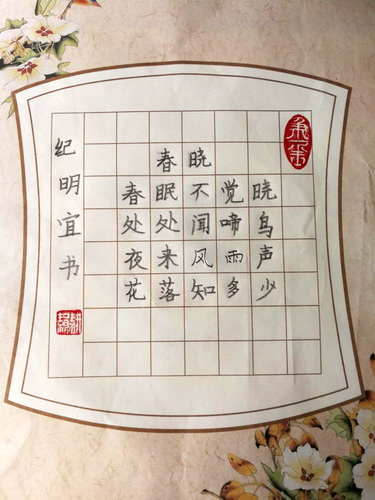 春晓
春眠不觉晓
处处闻啼鸟
夜来风雨声
花落知多少
纪明宜书